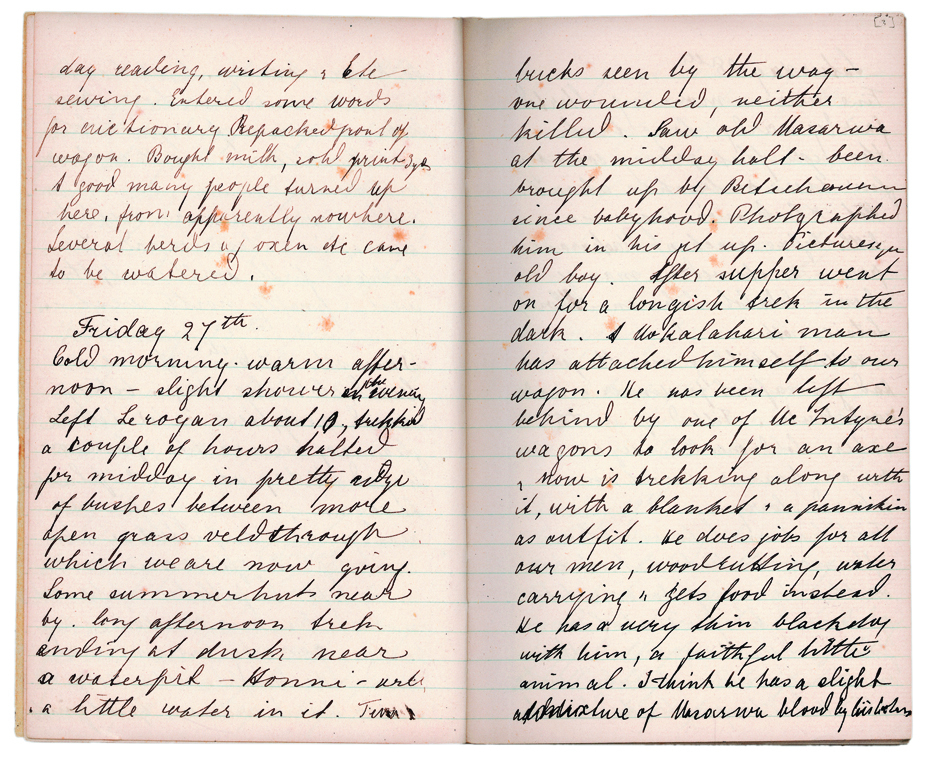 day reading, writing & Etc
sewing. Entered some words
for dictionary Repacked front of
wagon. Bought milk, sold print 3yds
A good many people turned up
here, from apparently nowhere.
Several herds of oxen etc came
to be watered.
Friday 27th.
Cold morning. warm after-
noon – slight shower in the evening
Left Lerogan about 10, trekked
a couple of hours halted
for midday in pretty edge
of bushes between more
open grass veld through
which we are now going.
Some summer huts near
by. long afternoon trek
ending at dusk near
a waterpit – Konni – with
a little water in it. Two
bucks seen by the way –
one wounded, neither
killed. Saw old Masarwa
at the midday halt - been
brought up by
since babyhood. Photgraphed
him in his get up. Picturesque
old boy. After supper went
on for a longish trek in the
dark. A Mokalahari man
has attached himself to our
wagon. He has been left
behind by one of Mc Intyre's
wagons to look for an axe
& now is trekking along with
it, with a blanket & a pannikin
as outfit. He does jobs for all
our men, woodcutting, water
carrying & gets food instead.
He has a very thin black dog
with him, a faithful little
animal. I think he has a slight
admixture of Masarwa blood by his looks